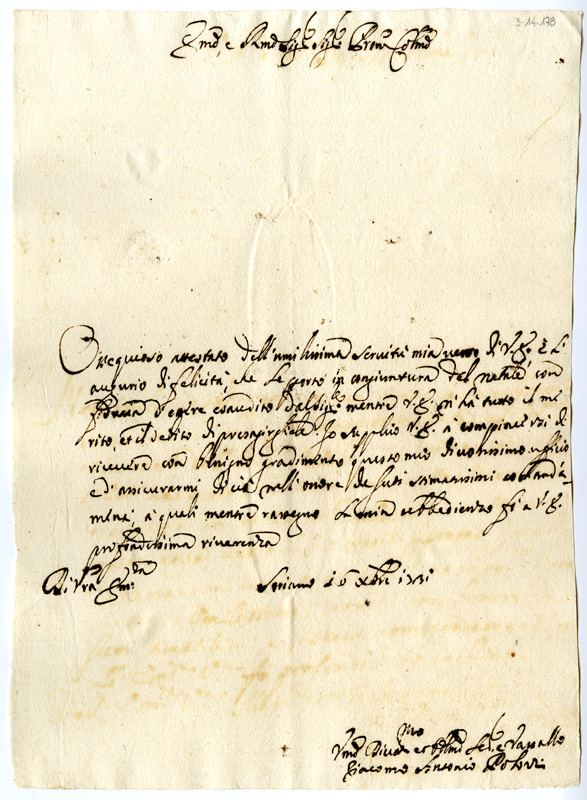 3-14-178
Emo, e Rmo Sigre Sigre Prone Colmo
Ossequioso attestato dell'umilissima servitù mia verso di V. E. è l'
augurio di felicità, che le porto in congiuntura del natale con
fiducia d'essere esaudito dal Sigre mentre V. E. n'ha tutto il me
rito, et il debito di Io supplico V. E. à compiacersi di
ricevere con benigno gradimento questo mio divotissimo uffizio
e d'assicurarmi di ciò nell'onore de suoi stimatissimi comanda
menti, a quali mentre rassegno la mia obbedienza fò a V. E.
profondissima riverenza
Di Vra Emza Soriano 16 Xbre 1731
Umo Divmo et Obblmo Sere e Vassallo
Giacomo Antonio